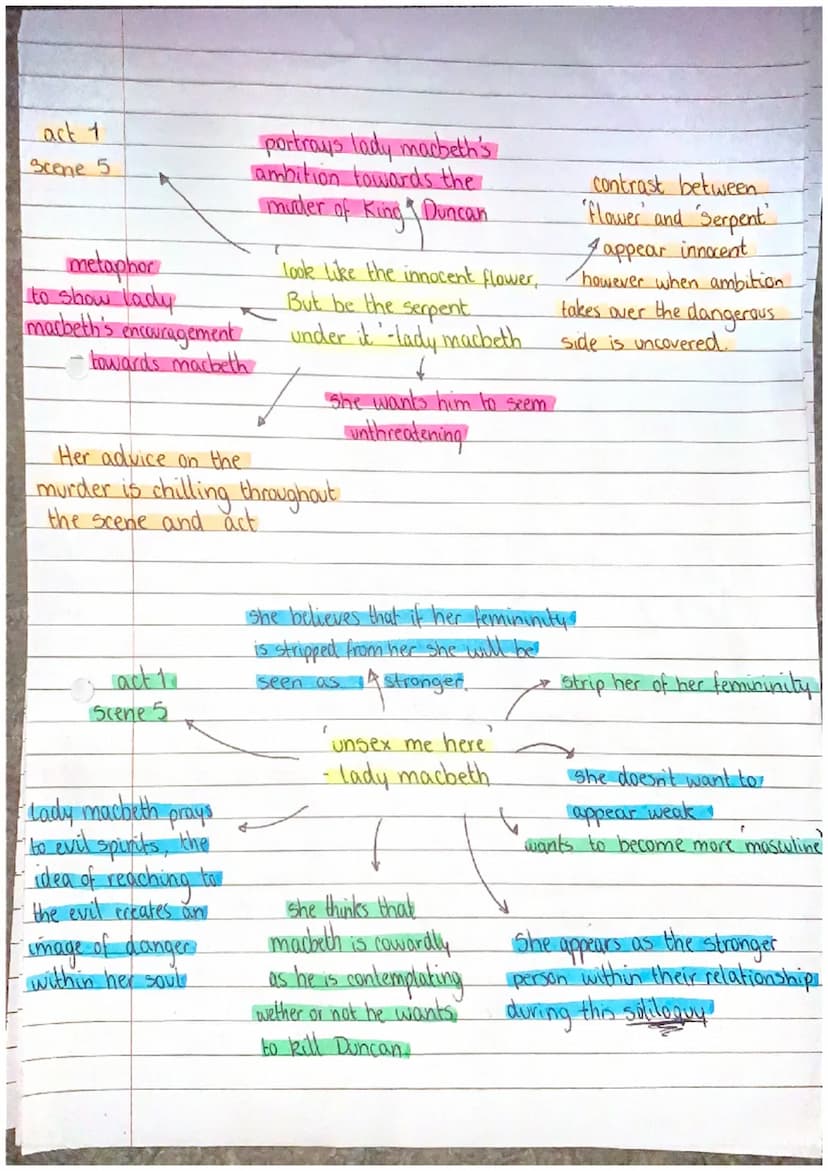 act 1
scene 5
portrays lady macbeth's
ambition towards the
muder of King Duncan
contrast between
'flower' and 'serpent'
appear innocent
however when ambition
takes over the dangerous
side is uncovered.
metaphor
to show lady
macbeth's encouragement
towards macbeth
'look like the innocent flower,
But be the serpent
under it'-lady macbeth
she wants him to seem
unthreatening
Her advice on the
murder is chilling throughout
the scene and act
she believes that if her femininity
is stripped from her she will be
seen as stronger.
act 1
scene 5
strip her of her femininity
'unsex me here'
- lady macbeth
she doesn't want to
appear weak
wants to become more 'masculine'
lady macbeth prays
to evil spirits, the
idea of reaching to
the evil creates an
image of danger
within her soul
she thinks that
macbeth is cowardly
as he is contemplating
wether or not he wants
to kill Duncan.
She appears as the stronger
person within their relationship
during this soliloquy